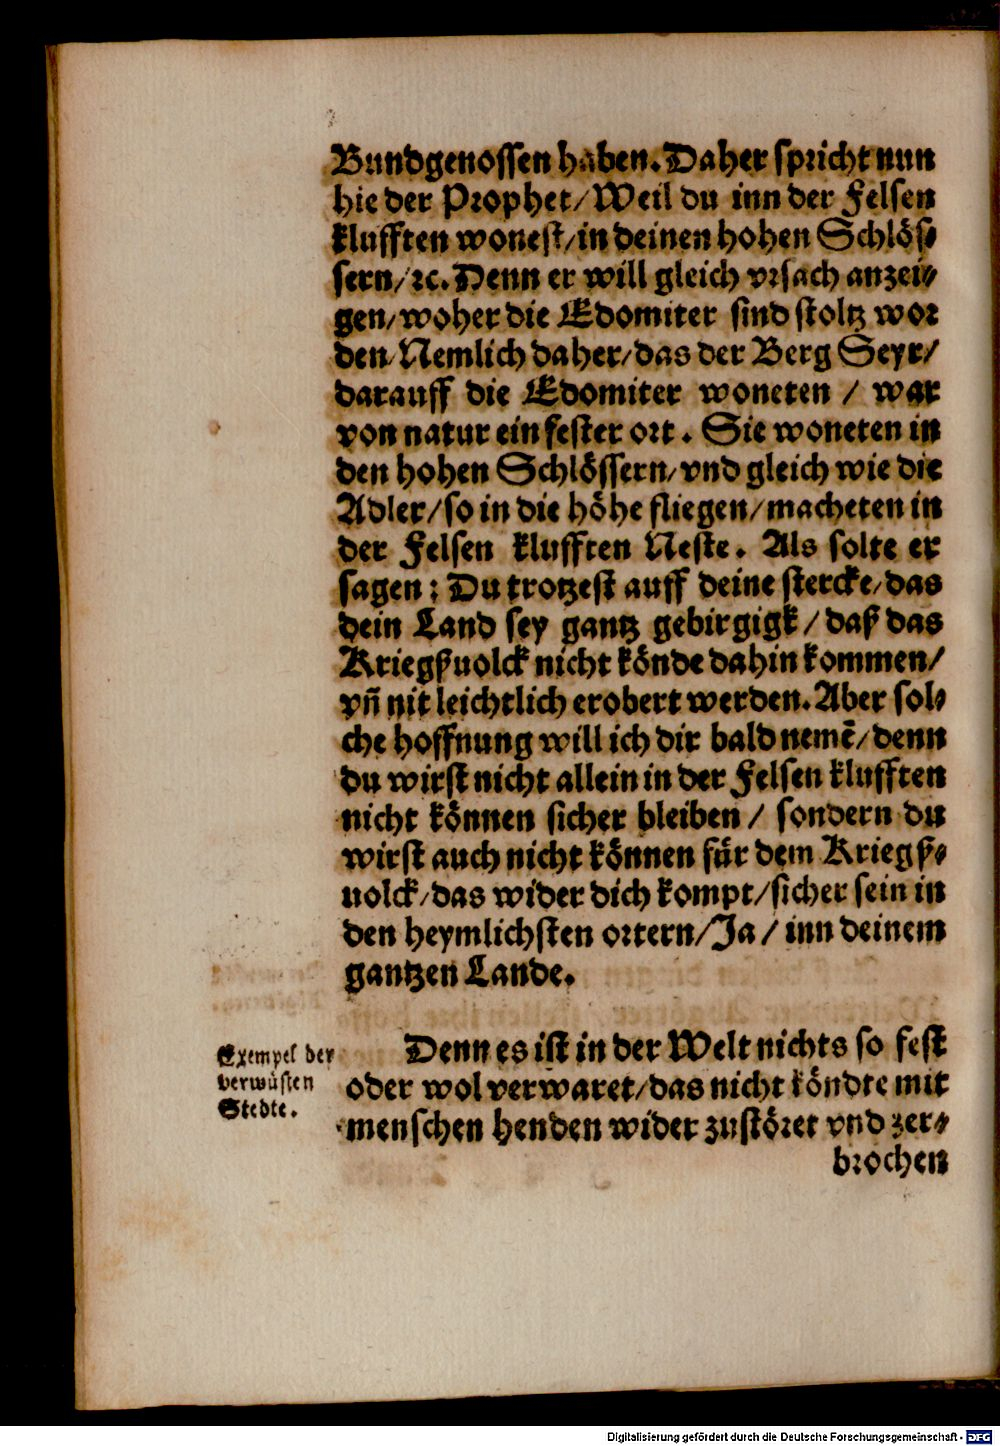 Bundgenossen haben. Daher spricht nun
hie der Prophet/ Weil du inn der Felsen
klufften wonest/ in deinen hohen Schlös⸗
sern/ ꝛc. Denn er will gleich vrsach anzei⸗
gen/ woher die Edomiter sind stoltz wor
den/ Nemlich daher/ das der Berg Seyr/
darauff die Edomiter woneten / war
von natur ein fester ort. Sie woneten in
den hohen Schlössern/ vnd gleich wie die
Adler/ so in die höhe fliegen/ macheten in
der Felsen klufften Neste. Als solte er
sagen: Du trotzest auff deine stercke/ das
dein Land sey gantz gebirgigk/ daß das
Kriegßuolck nicht könde dahin kommen/
vñ nit leichtlich erobert werden. Aber sol⸗
che hoffnung will ich dir bald nemē/ denn
du wirst nicht allein in der Felsen klufften
nicht können sicher bleiben/ sondern du
wirst auch nicht können für dem Kriegß⸗
uolck/ das wider dich kompt/ sicher sein in
den heymlichsten ortern/ Ja/ inn deinem
gantzen Lande.
Exempel der
verwüsten
Stedte.
Denn es ist in der Welt nichts so fest
oder wol verwaret/ das nicht köndte mit
menschen henden wider zustöret vnd zer⸗
brochen
Digitalisierung gefördert durch die Deutsche Forschungsgemeinschaft - DFG